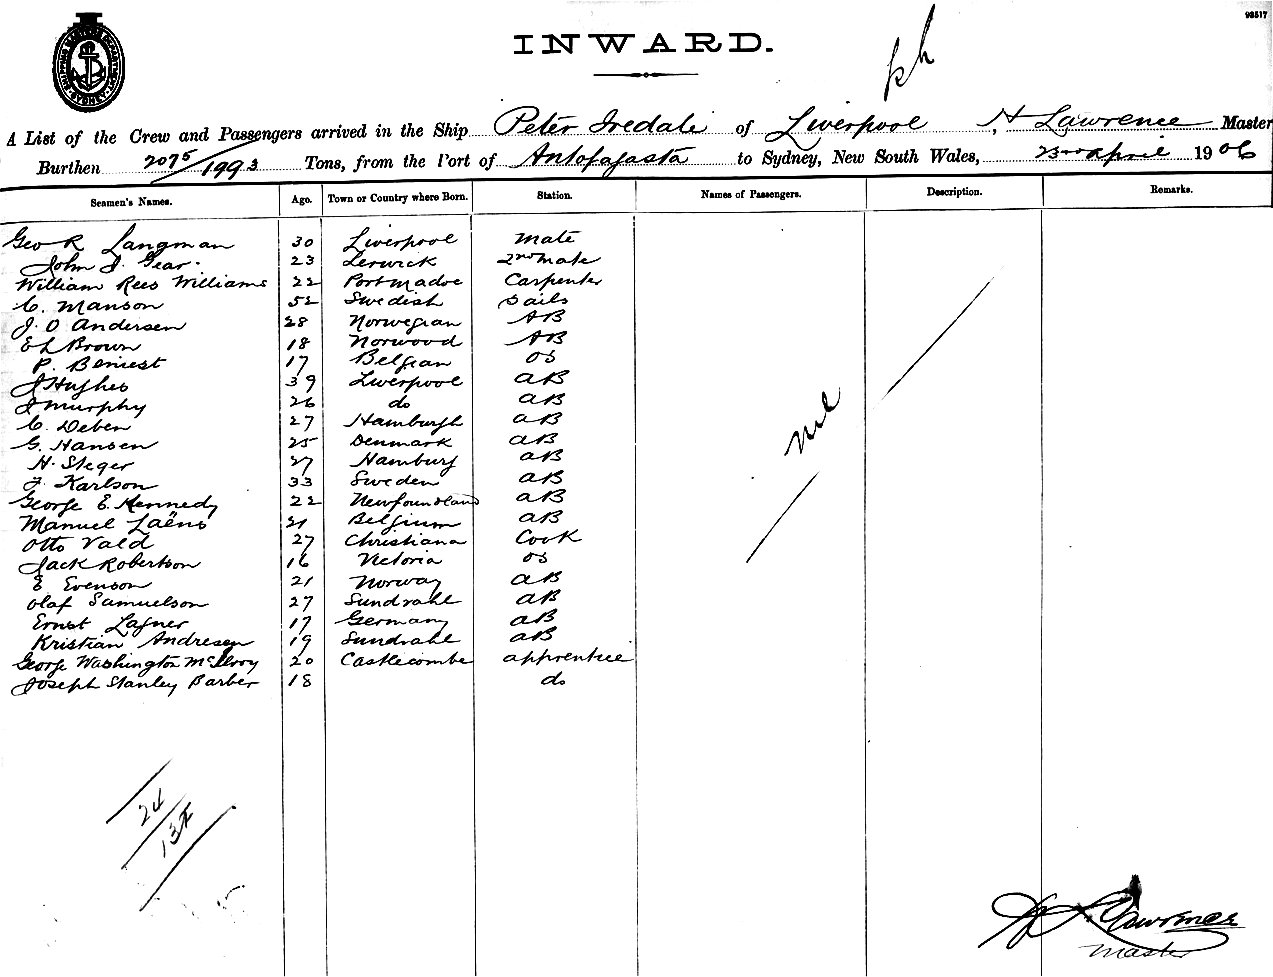 98517
SHIPPING MASTERS DEPARTMENT SYDNEY
INWARD.
A List of the Crew and Passengers arrived in the Ship Peter Iredale of Liverpool, H Lawrence Master
Burthen 2075/1993 Tons, from the Port of Antofagasta to Sydney, New South Wales, 23rd April 1906
Seamen's Names. Age. Town or Country where Born. Station. Names of Passengers. Description. Remarks.
Geo R Langman 30 Liverpool Mate
John J. Gear 23 Lerwick 2nd Mate
William Rees Williams 22 Portmadoc Carpenter
C. Manson 52 Swedish Sails
J. O Andersen 28 Norwegian AB
E L Brown 18 Norwood AB
P. Beniest 17 Belgian OS
J Hughes 39 Liverpool AB
J Murphy 26 do AB
C. Deben 27 Hamburgh AB
G. Hansen 25 Denmark AB
H. Steger 27 Hamburg AB
F. Karlson 33 Sweden AB
George E. Kennedy 22 Newfoundland AB
Manuel Laëns 21 Belgium AB
Otto Vald 27 Christiana Cook
Jack Robertson 16 Victoria OS
E Evenson 21 Norway AB
Olaf Samuelson 27 Sundvahl AB
Ernst Lafner 17 Germany AB
Kristian Andresen 19 Sundvahl AB
George Washington McIlroy 20 Castlecombe apprentice
Joseph Stanley Barber 18 do
nil
24
H Lawrence
Master